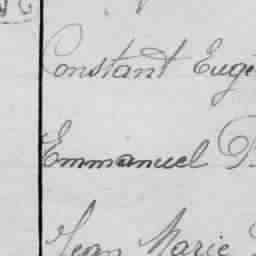 Constant Eugè
Emmanuel P
Jean Marie